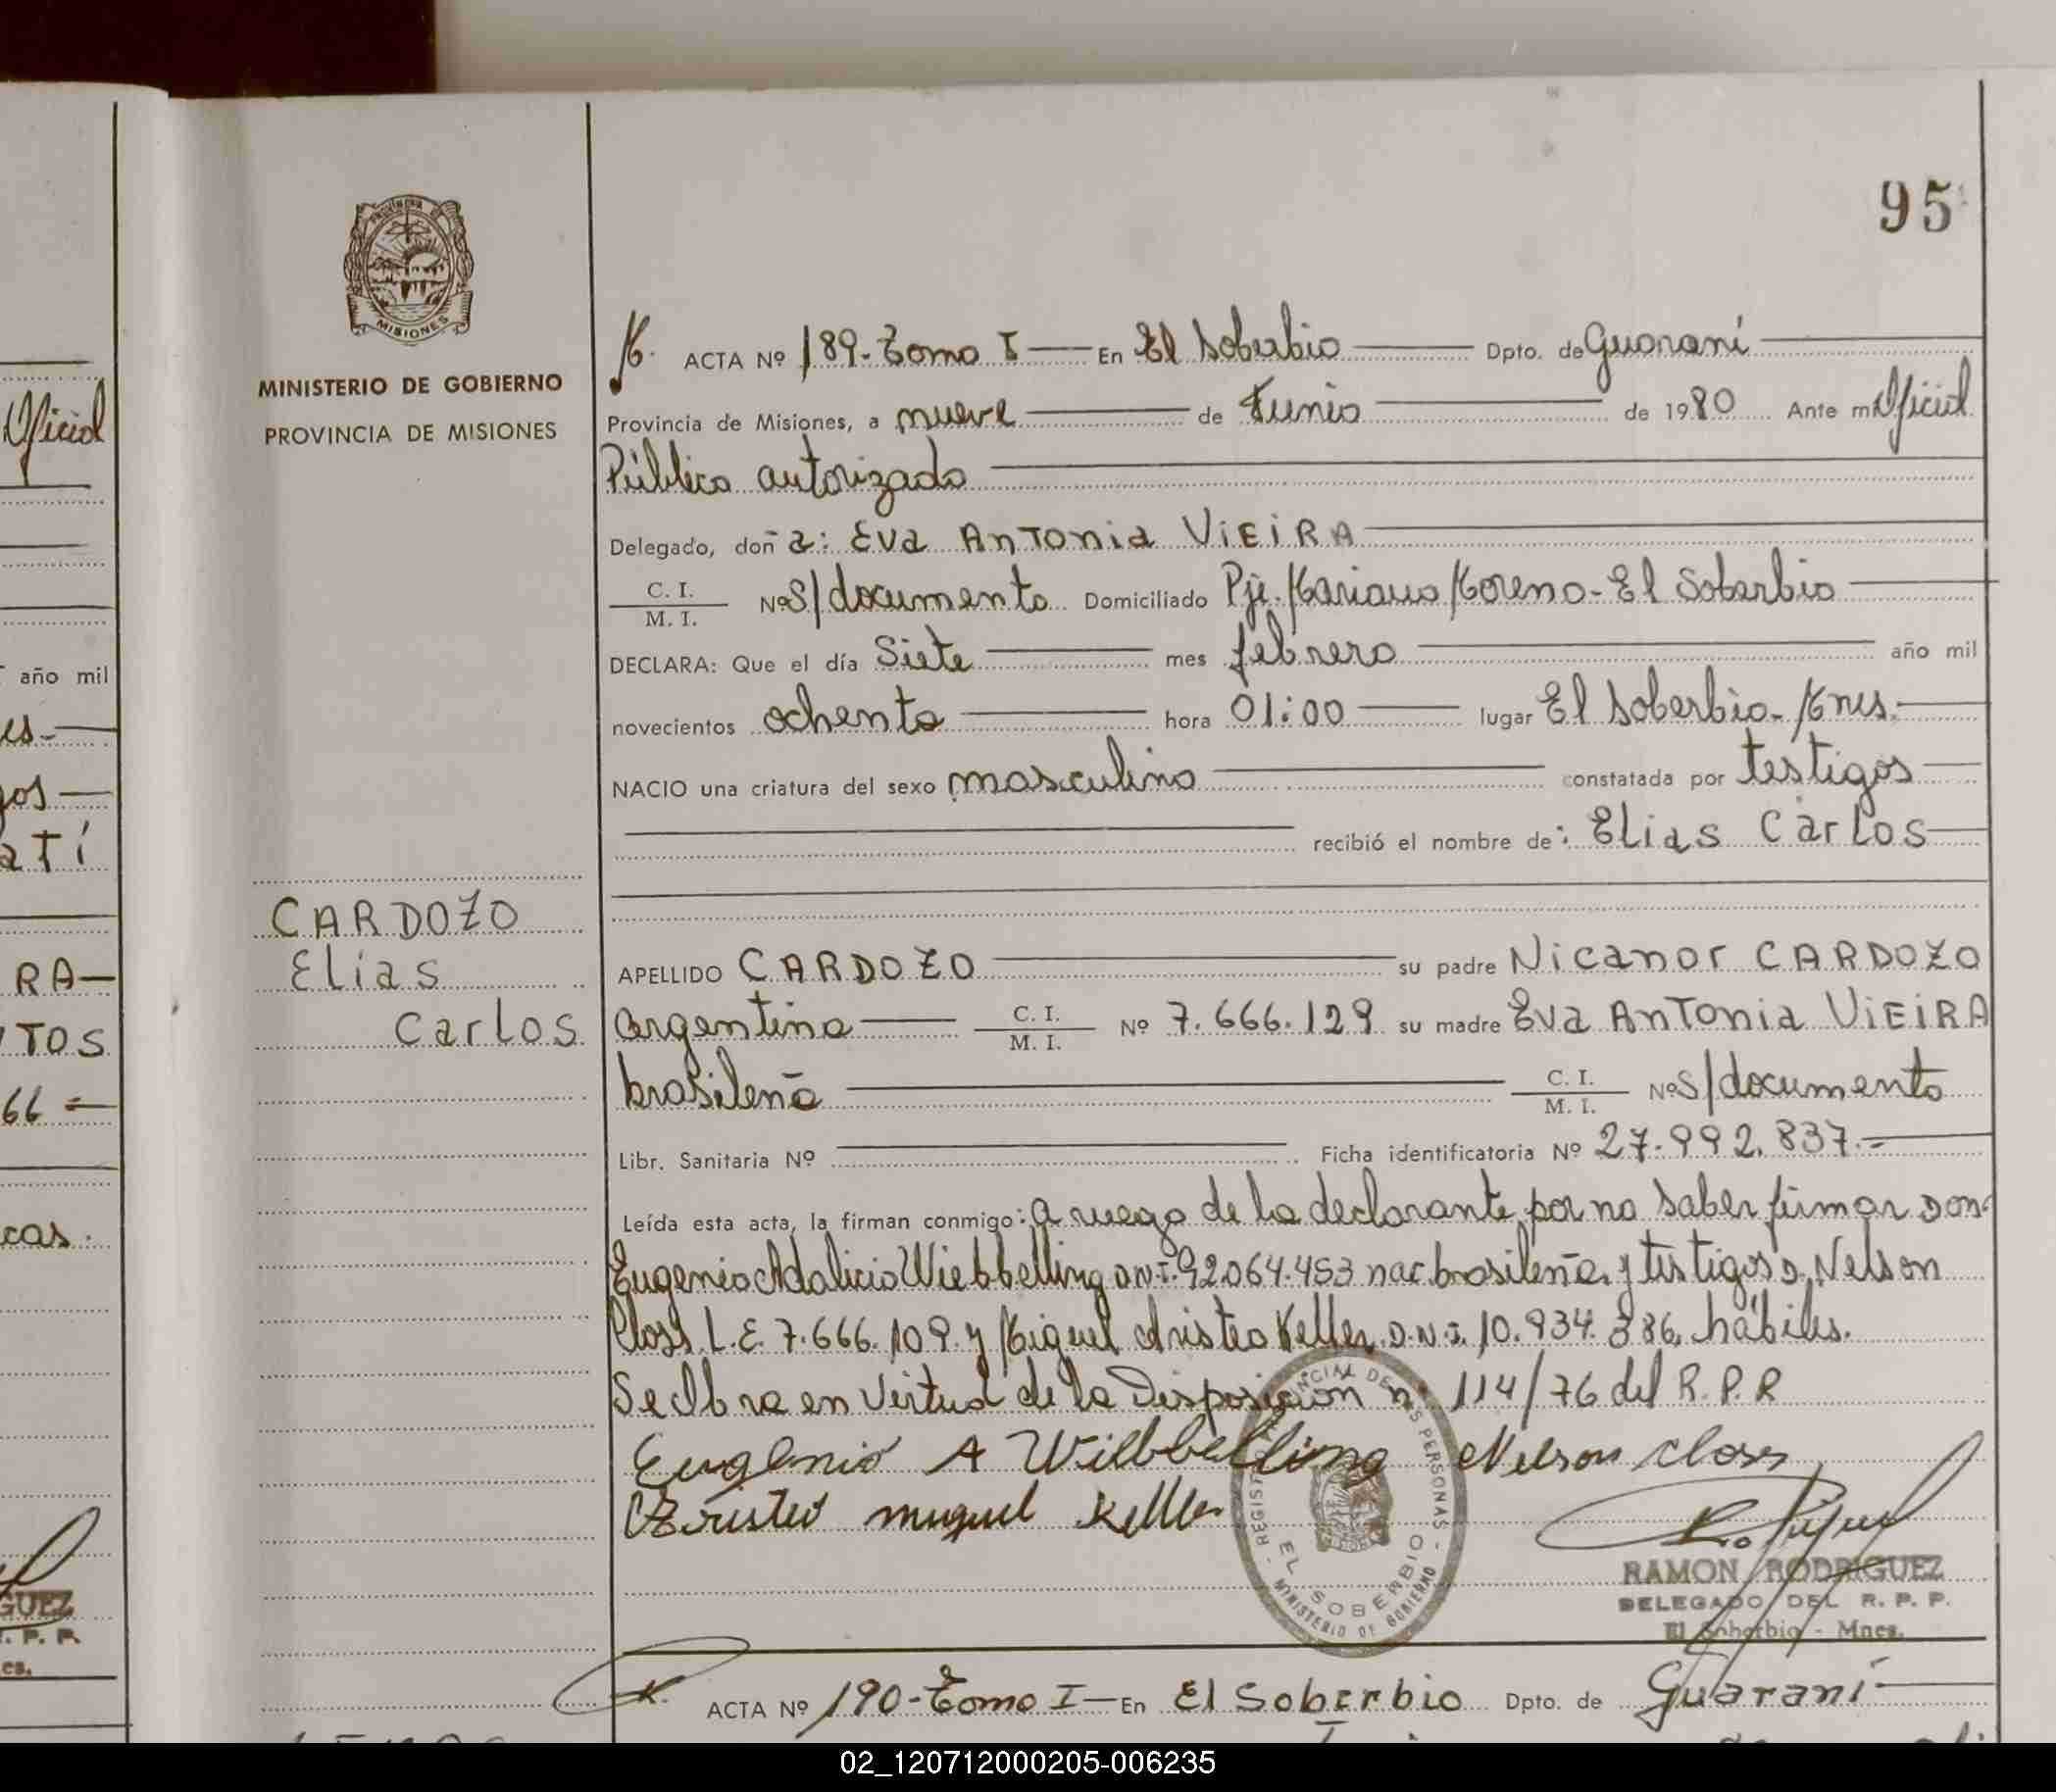 95
PROVINCIA DE
MISIONES
MINISTERIO DE GOBIERNO
PROVINCIA DE MISIONES
M. ACTA Nº 189-Tomo I — En El Soberbio — Dpto. de Guaraní
Provincia de Misiones, a nueve de Junio de 1980 Ante mi Oficial
Público autorizado
Delegado, doña: Eva Antonia VIEIRA
C. I. / M. I. Nº S/documento Domiciliado Pje. Mariano Moreno - El Soberbio
DECLARA: Que el día Siete mes febrero año mil
novecientos ochenta hora 01:00 lugar El Soberbio - Mnes.
NACIO una criatura del sexo masculino constatada por testigos
recibió el nombre de: Elias Carlos
CARDOZO
Elías
Carlos
APELLIDO CARDOZO su padre Nicanor CARDOZO
argentino C. I. / M. I. Nº 7.666.129 su madre Eva Antonia VIEIRA
brasileña C. I. / M. I. Nº S/documento
Libr. Sanitaria Nº Ficha identificatoria Nº 27.992.837.=
Leída esta acta, la firman conmigo: a ruego de la declarante por no saber firmar Don
Eugenio Adalicio Wiebbelling D.N.I. 92.064.453 nac. brasileña y testigos D. Nelson
Closs L.E. 7.666.109 y Miguel Aristeo Keller D.N.I. 10.934.386, hábiles.
Se Obra en Virtud de la Disposición nº 114/76 del R.P.R
Eugenio A Wiebbelling Nelson Closs
Aristeo Miguel Keller
REGISTRO PROVINCIAL DE LAS PERSONAS
EL SOBERBIO
MINISTERIO DE GOBIERNO
RAMON RODRIGUEZ
DELEGADO DEL R. P. P.
El Soberbio - Mnes.
ACTA Nº 190-Tomo I — En El Soberbio Dpto. de Guaraní
Oficial
año mil
es.
gos
atí
RA
TOS
66
cas.
GUEZ
. P. P.
es.
02_120712000205-006235